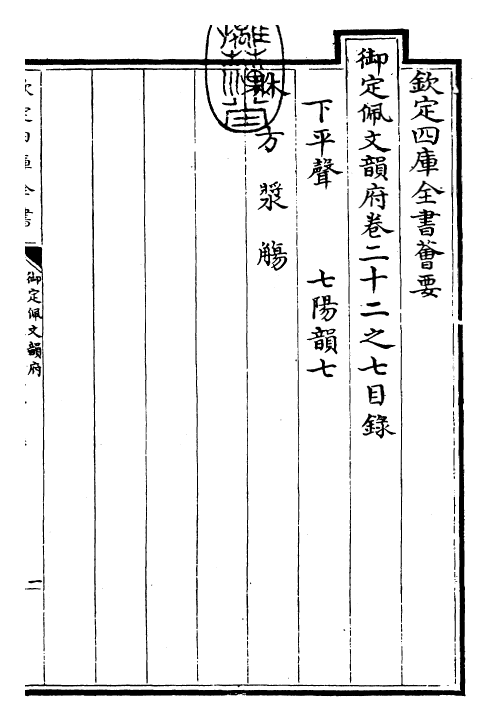 欽定四庫全書薈要
御定佩文韻府卷二十二之七目錄
下平聲 七陽韻七
方 漿 觴
欽定四庫全書
御定佩文韻府